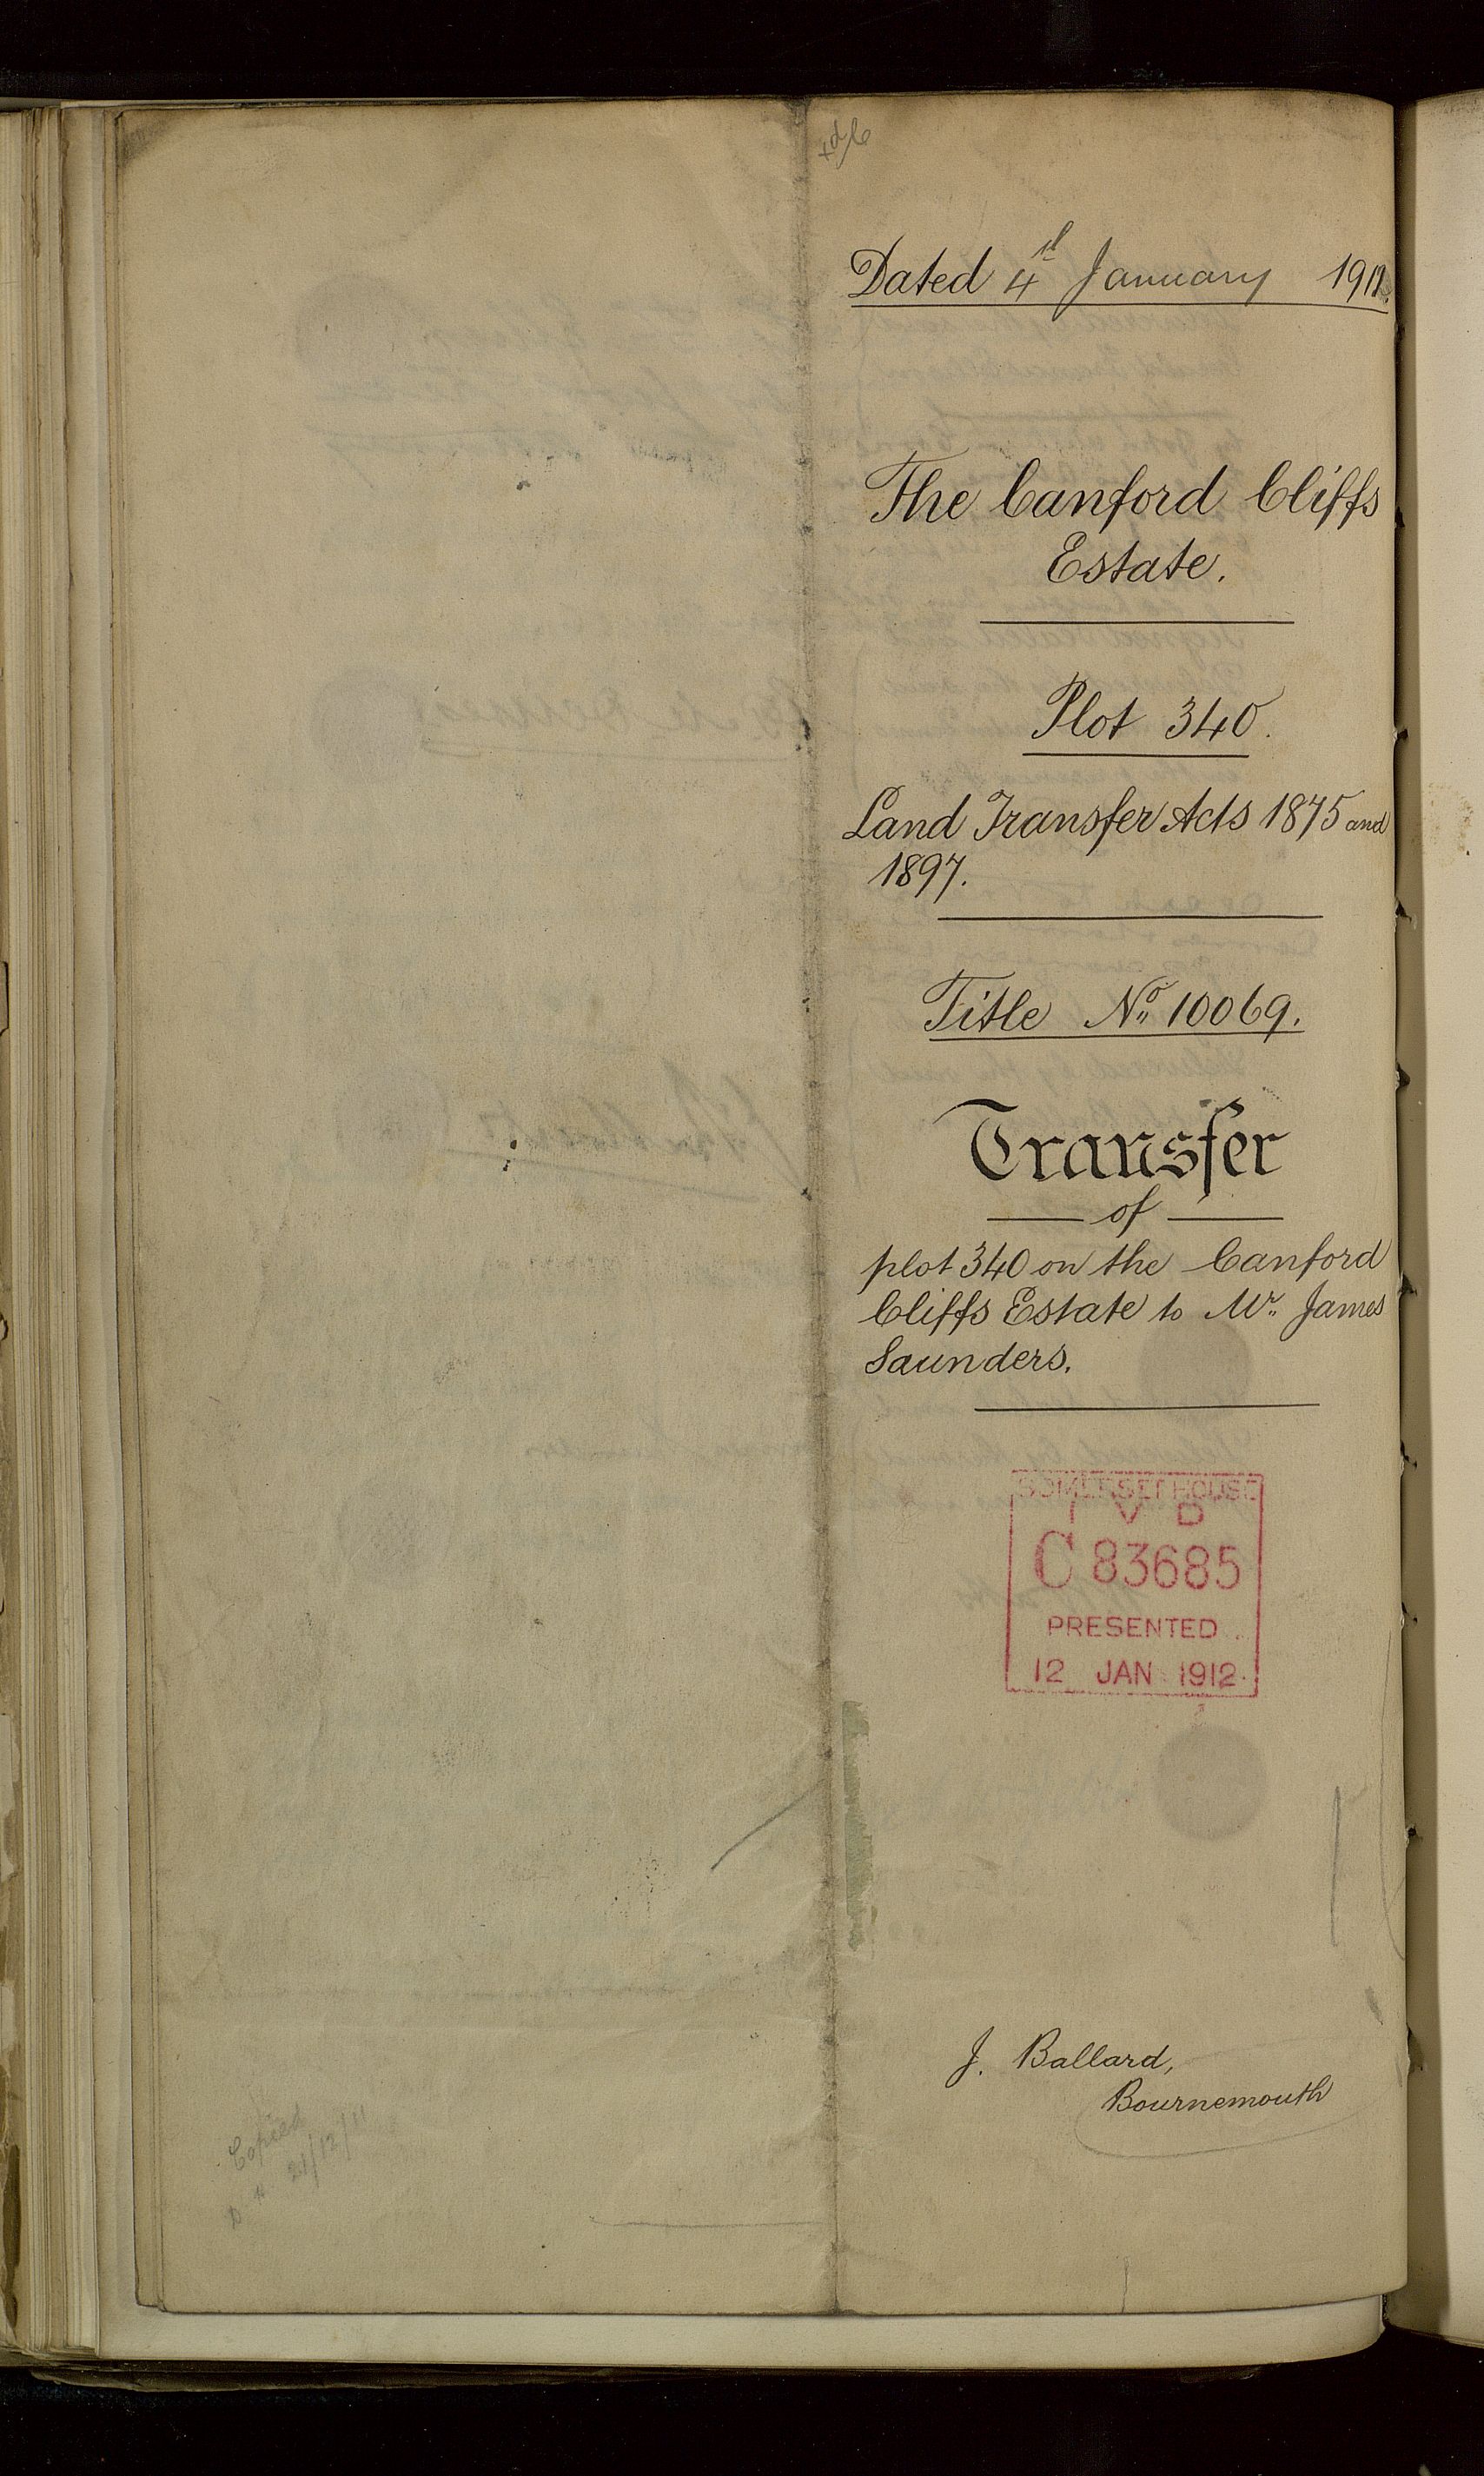 Dated 4th January 1912.
The Canford Cliffs
Estate.
Plot 340.
Land Transfer Acts 1875 and
1897.
Title No. 10069.
Transfer
of
plot 340 on the Canford
Cliffs Estate to Mr. James
Saunders.
SOMERSET HOUSE
I V D
C 83685
PRESENTED
12 JAN 1912
J. Ballard,
Bournemouth
Copied
21/12/11